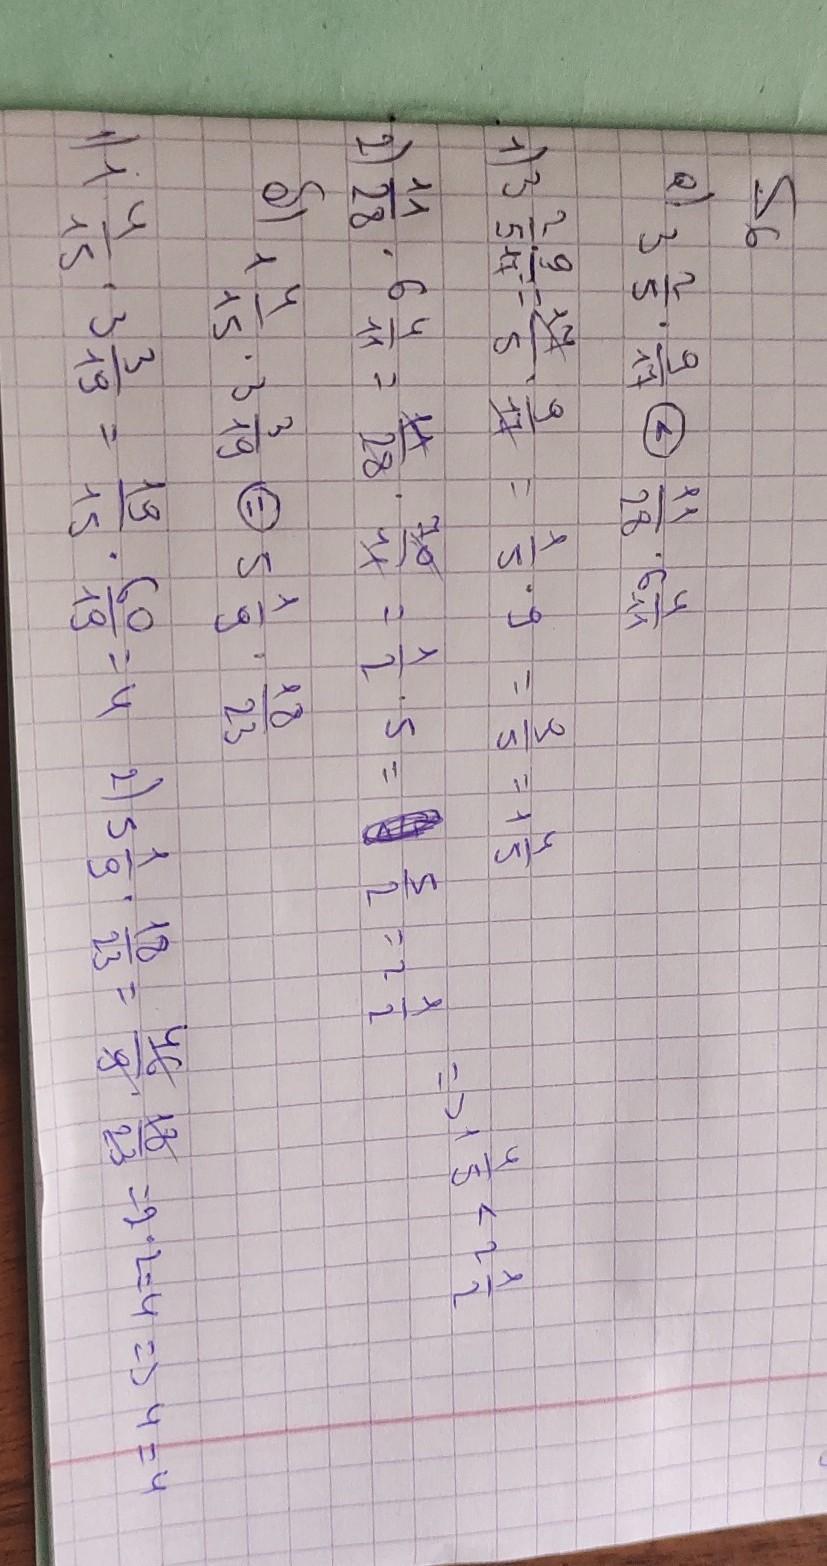 56
а) 3 2/5 · 9/17 < 11/28 · 6 4/11
1) 3 2/5 · 9/17 = 17/5 · 9/17 = 1/5 · 9 = 9/5 = 1 4/5
2) 11/28 · 6 4/11 = 11/28 · 70/11 = 1/2 · 5 = 5/2 = 2 1/2 => 1 4/5 < 2 1/2
б) 1 4/15 · 3 3/19 = 5 1/9 · 18/23
1) 1 4/15 · 3 3/19 = 19/15 · 60/19 = 4 2) 5 1/9 · 18/23 = 46/9 · 18/23 = 2 · 2 = 4 => 4 = 4